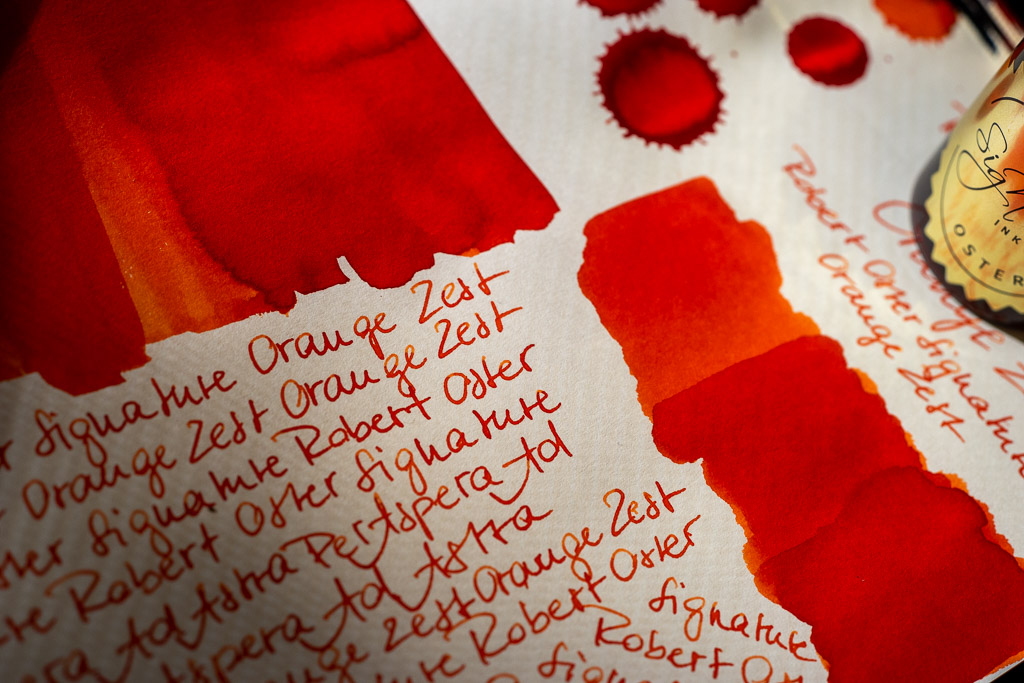 Signature Orange Zest
Orange Zest Orange Zest
Signature Robert Oster
Robert Oster Signature
Ad Astra Per Aspera Ad
Aspera Ad Astra
Zest Orange Zest
Robert Oster
Signature
Robert
Robert Oster Signature
Orange Zest
Orange
INK
OSTER